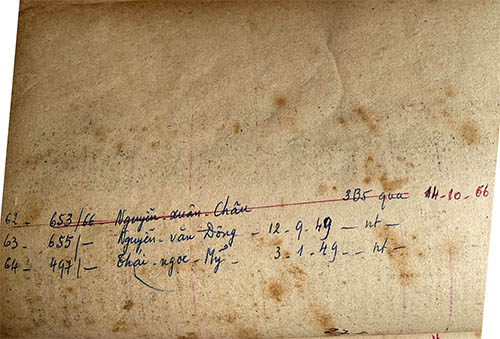 62 - 653/66 Nguyễn - xuân - Châu 3B5 qua 14-10-66
63 - 655/- Nguyễn - văn Đông - 12-9-49 - nt -
64 - 497/- Thái - ngọc - Mỹ - 3-1-49 - nt -